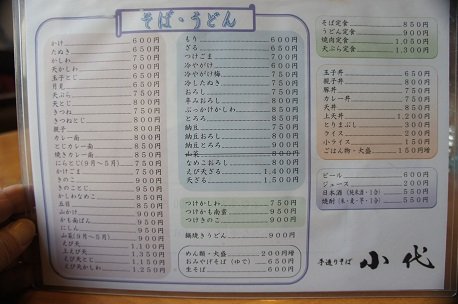 そば・うどん
かけ 600円
たぬき 650円
かしわ 750円
天かしわ 950円
玉子とじ 650円
月見 650円
天ぷら 750円
天とじ 800円
きつね 750円
きつねとじ 800円
親子 850円
カレー南 800円
とじカレー南 850円
焼きカレー南 850円
にらとじ(9月～5月)
かけごま
きのこ 900円
きのことじ
かしわなめこ
五目
山かけ
かも南ばん
にしん
山菜(9月～5月)
えび天 1,100円
上えび天 1,300円
えび天とじ 1,150円
えび天カレー 1,250円
もり 600円
ざる 650円
つけごま 700円
冷やがけ
冷やがけ梅 750円
冷したぬき 750円
おろし 750円
辛みおろし
ぶっかけかしわ
とろろ 850円
納豆 750円
納豆おろし 800円
納豆とろろ 900円
山菜 900円
なめこおろし 800円
えび天ざる 1,400円
天ざる 1,150円
つけかしわ 750円
つけかも南蛮 950円
つけきのこ 900円
鍋焼きうどん 900円
めん類・大盛 200円増
おみやげそば(ゆで) 650円
生そば 600円
そば定食 850円
うどん定食 900円
焼肉定食 1,050円
天ぷら定食 1,300円
玉子丼 650円
親子丼 800円
豚丼 850円
カレー丼 850円
天丼 850円
上天丼 1,200円
とりまぶし 300円
ライス 200円
小ライス 150円
ごはん物・大盛 150円増
ビール 600円
ジュース 200円
日本酒(純米酒・1合) 550円
焼酎(米・麦・芋・1合) 550円
手造りそば 小代